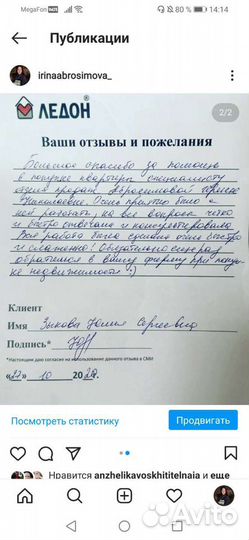 MegaFon
80 %
14:14
Публикации
irinaabrosimova_
ЛЕДОН
2/2
Ваши отзывы и пожелания
Большое спасибо за помощь
в покупке квартиры специалисту
отдела продаж Абросимовой Ирине
Николаевне. Очень приятно было с
ней работать, на все вопросы четко
и быстро отвечала и консультировала.
Вся работа была сделана очень быстро
и слаженно! Обязательно
обратимся в вашу фирму при покуп-
ке недвижимости :)
Клиент
Имя Зыкова Юлия Сергеевна
Подпись*
*Настоящим даю согласие на использование данного отзыва в СМИ
«22» 10 20
Посмотреть статистику
Продвигать
Нравится anzhelikavoskhititelnaia и еще
Avito